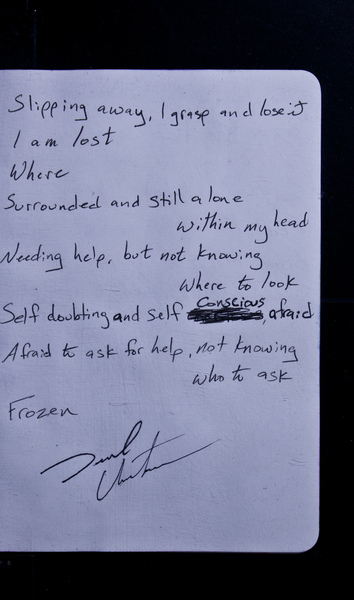 Slipping away, I grasp and lose it
I am lost
Where
Surrounded and still alone
within my head
Needing help, but not knowing
where to look
Self doubting and self conscious, afraid
Afraid to ask for help, not knowing
who to ask
Frozen